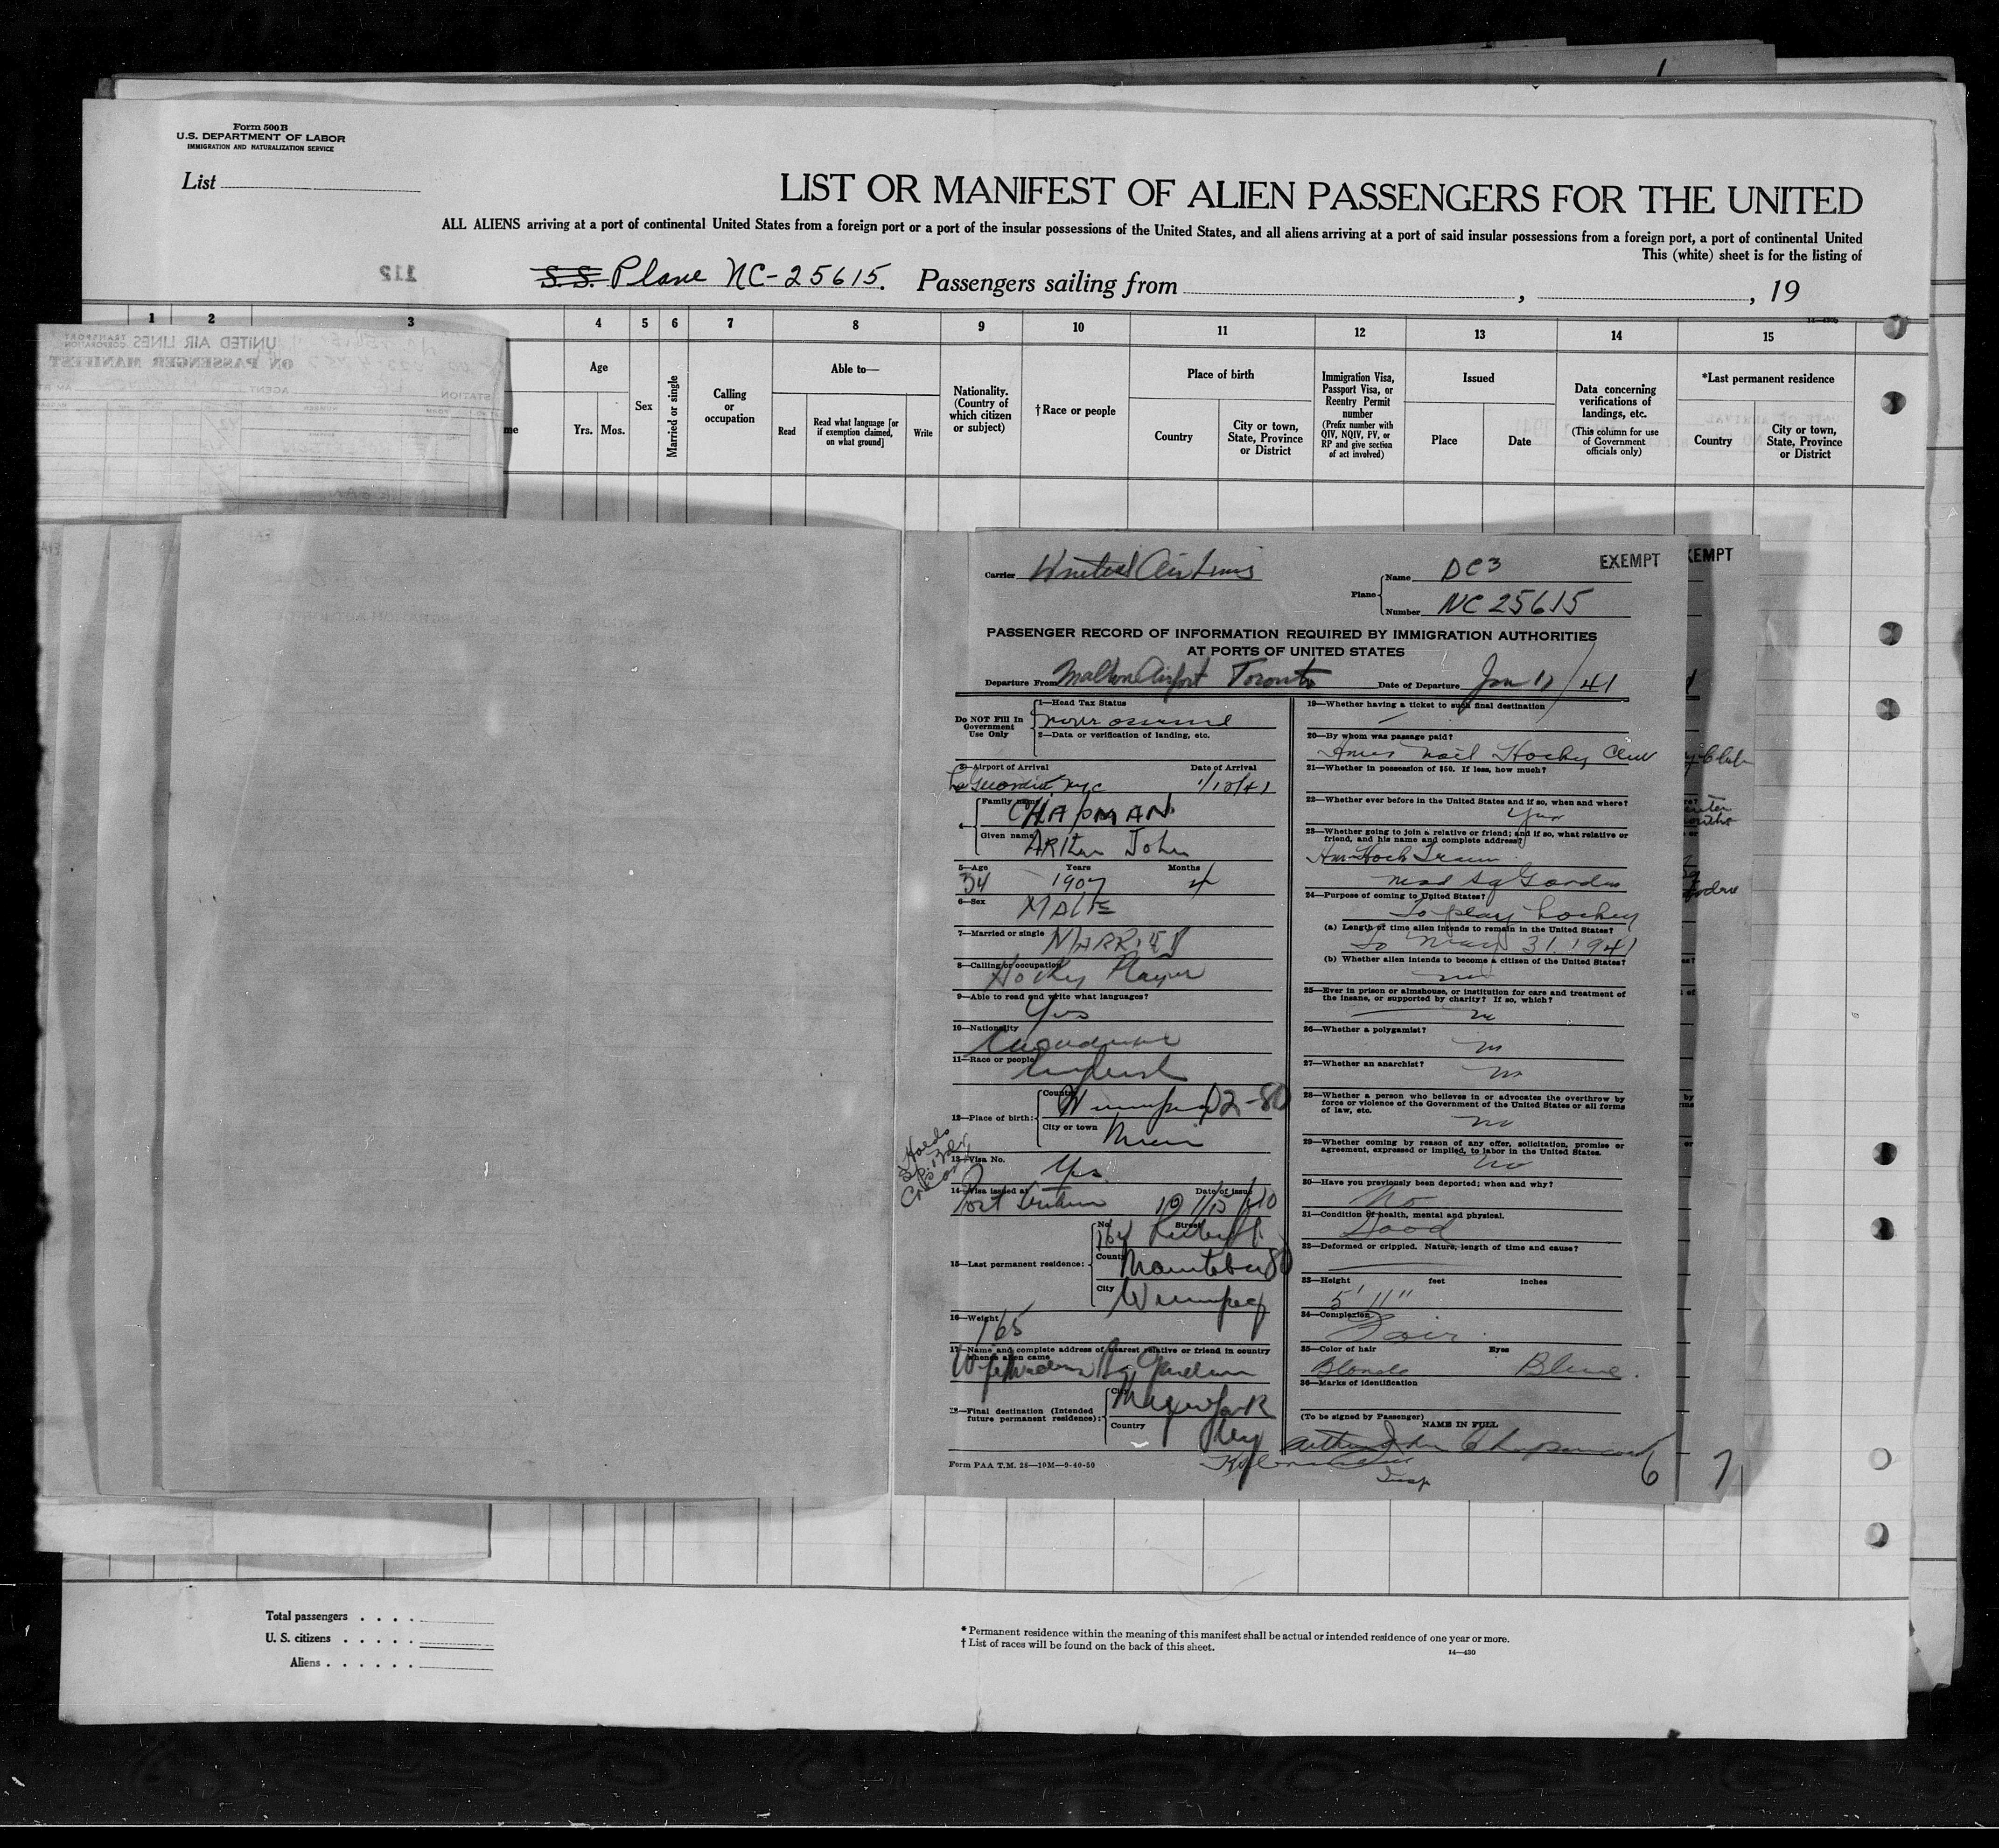 Form 500B
U.S. DEPARTMENT OF LABOR
IMMIGRATION AND NATURALIZATION SERVICE
List
LIST OR MANIFEST OF ALIEN PASSENGERS FOR THE UNITED
ALL ALIENS arriving at a port of continental United States from a foreign port or a port of the insular possessions of the United States, and all aliens arriving at a port of said insular possessions from a foreign port, a port of continental United
This (white) sheet is for the listing of
112
S.S. Plane NC-25615. Passengers sailing from , , 19
1 2 3 4 5 6 7 8 9 10 11 12 13 14 15
UNITED AIR LINES TRANSPORT CORPORATION
ON PASSENGER MANIFEST
STATION AGENT
me
Age
Yrs. Mos.
Sex
Married or single
Calling or occupation
Able to—
Read
Read what language [or if exemption claimed, on what ground]
Write
Nationality. (Country of which citizen or subject)
†Race or people
Place of birth
Country
City or town, State, Province or District
Immigration Visa, Passport Visa, or Reentry Permit number
(Prefix number with QIV, NQIV, PV, or RP and give section of act involved)
Issued
Place
Date
Data concerning verifications of landings, etc.
(This column for use of Government officials only)
*Last permanent residence
Country
City or town, State, Province or District
Carrier United Air Lines
Plane
Name DC3
Number NC 25615
EXEMPT
EMPT
PASSENGER RECORD OF INFORMATION REQUIRED BY IMMIGRATION AUTHORITIES
AT PORTS OF UNITED STATES
Departure From Malton Airport Toronto Date of Departure Jan 12/41
Do NOT Fill In Government Use Only
1—Head Tax Status
2—Data or verification of landing, etc.
3—Airport of Arrival Date of Arrival
La Guardia NYC 1/12/41
4—
Family name CHAPMAN
Given name ARthur John
5—Age Years Months
34 1907 4
6—Sex MALE
7—Married or single MARRIED
8—Calling or occupation
Hockey Player
9—Able to read and write what languages?
Yes
10—Nationality
Canadian
11—Race or people
English
12—Place of birth:
Country Winnipeg 02-80
City or town
13—Visa No. Yes
14—Visa issued at Date of issue
Port Arthur 10/15/40
15—Last permanent residence:
No. Street
County Manitoba 80
City Winnipeg
16—Weight
165
17—Name and complete address of nearest relative or friend in country whence alien came
Wife Madison Sq Garden
18—Final destination (Intended future permanent residence):
City New York
Country NY
Form PAA T.M. 28—10M—9-40-50
19—Whether having a ticket to such final destination
20—By whom was passage paid?
Amer Nat'l Hockey Club
21—Whether in possession of $50. If less, how much?
22—Whether ever before in the United States and if so, when and where?
Yes
23—Whether going to join a relative or friend; and if so, what relative or friend, and his name and complete address?
Am Hock Team
Mad Sq Garden
24—Purpose of coming to United States?
To play hockey
(a) Length of time alien intends to remain in the United States?
To May 31. 1941
(b) Whether alien intends to become a citizen of the United States?
no
25—Ever in prison or almshouse, or institution for care and treatment of the insane, or supported by charity? If so, which?
no
26—Whether a polygamist?
no
27—Whether an anarchist?
no
28—Whether a person who believes in or advocates the overthrow by force or violence of the Government of the United States or all forms of law, etc.
no
29—Whether coming by reason of any offer, solicitation, promise or agreement, expressed or implied, to labor in the United States.
no
30—Have you previously been deported; when and why?
No
31—Condition of health, mental and physical.
Good
32—Deformed or crippled. Nature, length of time and cause?
33—Height feet inches
5' 11"
34—Complexion
Fair
35—Color of hair Eyes
Blonde Blue
36—Marks of identification
(To be signed by Passenger)
NAME IN FULL
Arthur John Chapman
Insp
6
7
Total passengers
U. S. citizens
Aliens
* Permanent residence within the meaning of this manifest shall be actual or intended residence of one year or more.
† List of races will be found on the back of this sheet.
14—430